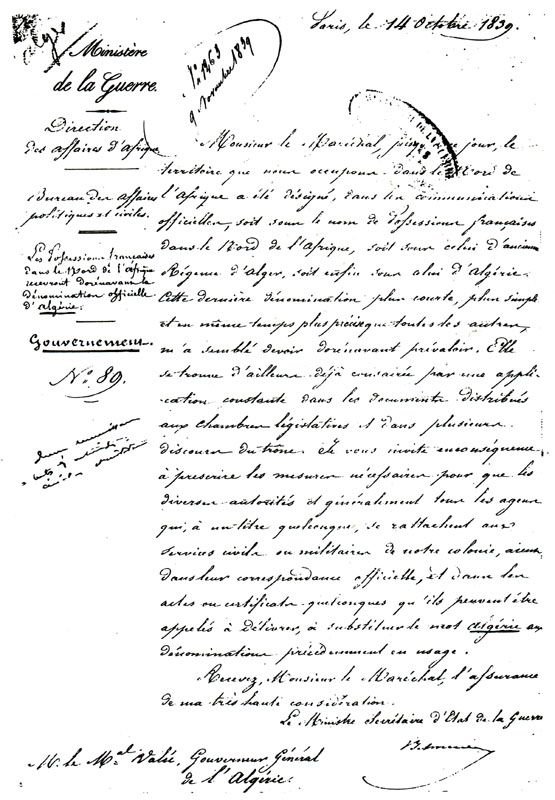 Paris, le 14 Octobre 1839.
Alger
Ministère
de la Guerre.
N° 1963
9 Novembre 1839
Direction
des affaires d'afrique
Bureau des affaires
politiques et civiles.
Les Possessions françaises
dans le Nord de l'Afrique
recevront dorénavant la
dénomination officielle
d'algérie.
Gouvernement.
N° 89.
Monsieur le Maréchal, jour, le
territoire que nous occupons dans le Nord de
l'Afrique a été désigné, dans les communications
officielles, soit sous le nom de Possessions françaises
dans le Nord de l'Afrique, soit sous celui d'ancienne
Régence d'Alger, soit enfin sous celui d'Algérie.
Cette dernière dénomination plus courte, plus simple
et en même temps plus précise que toutes les autres,
m'a semblé devoir dorénavant prévaloir. Elle
se trouve d'ailleurs déjà consacrée par une appli-
cation constante dans les documents distribués
aux chambres législatives et dans plusieurs
discours du trône. Je vous invite en conséquence
à prescrire les mesures nécessaires pour que les
diverses autorités et généralement tous les agens
qui, à un titre quelconque, se rattachent aux
services civils ou militaires de notre colonie, aient
dans leur correspondance officielle, et dans les
actes ou certificats quelconques qu'ils peuvent être
appelés à délivrer, à substituer le mot algérie aux
dénominations précédemment en usage.
Recevez, Monsieur le Maréchal, l'assurance
de ma très haute considération.
Le Ministre Secrétaire d'Etat de la Guerre
M. le Mal Valée, Gouverneur Général
de l'Algérie.